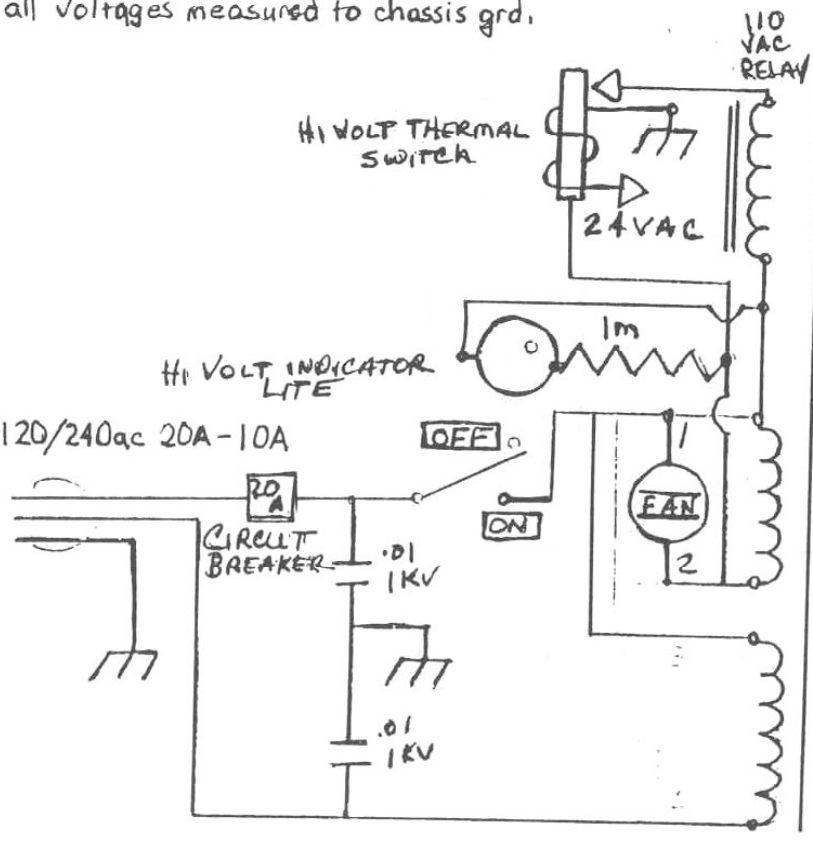 all voltages measured to chassis grd.
110
VAC
RELAY
HI VOLT THERMAL
SWITCH
24VAC
1m
HI VOLT INDICATOR
LITE
120/240ac 20A-10A
OFF
1
20
A
FAN
ON
CIRCUIT
BREAKER
.01
1KV
2
.01
1KV